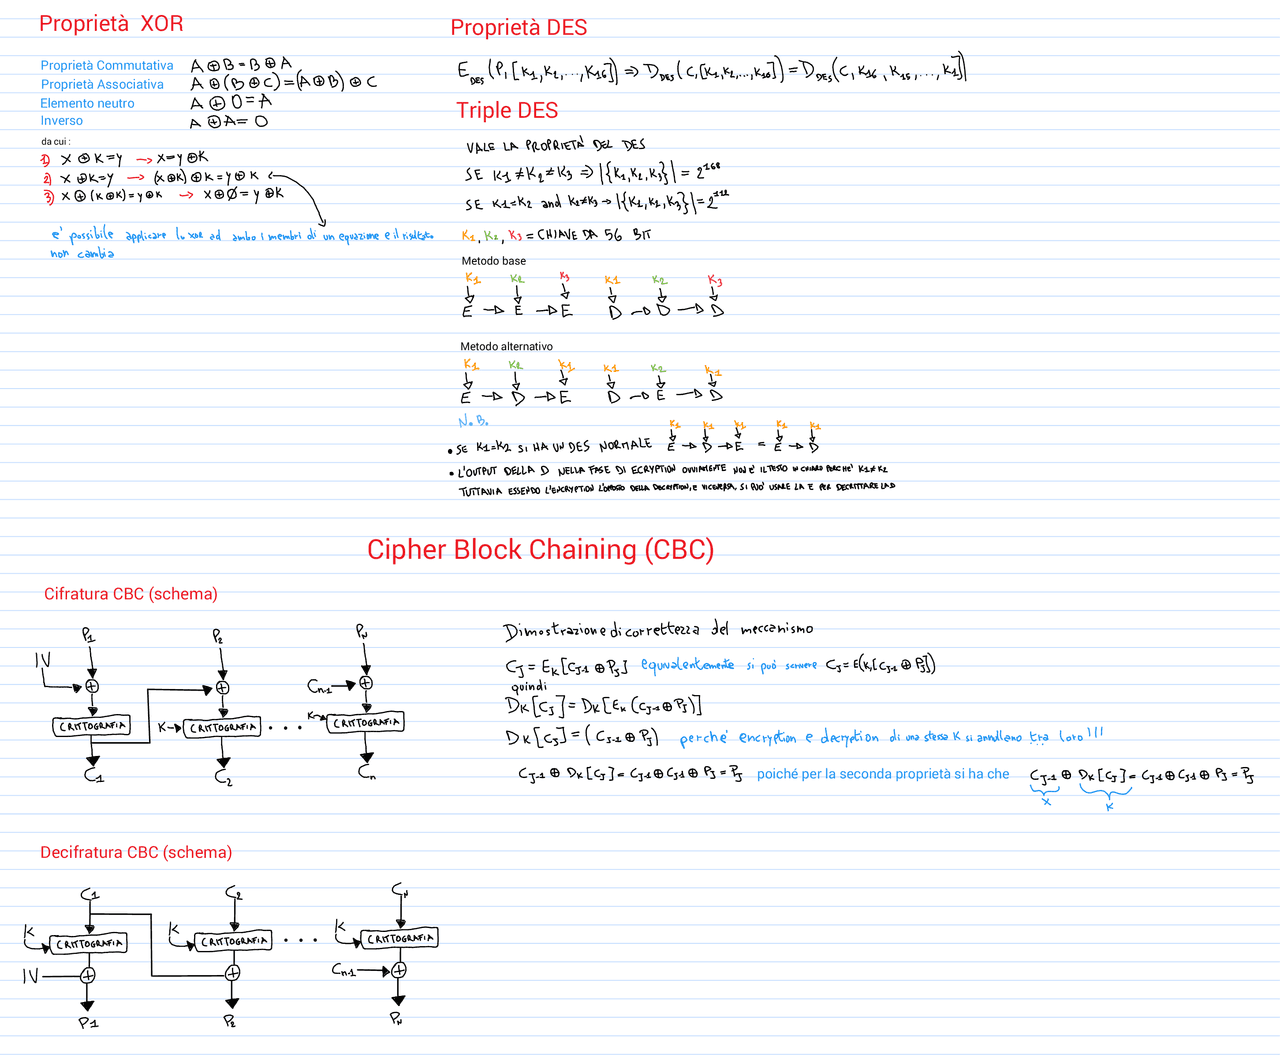 Proprietà XOR
Proprietà Commutativa A ⊕ B = B ⊕ A
Proprietà Associativa A ⊕ (B ⊕ C) = (A ⊕ B) ⊕ C
Elemento neutro A ⊕ 0 = A
Inverso A ⊕ A = 0
da cui :
1) X ⊕ K = Y → X = Y ⊕ K
2) X ⊕ K = Y → (X ⊕ K) ⊕ K = Y ⊕ K
3) X ⊕ (K ⊕ K) = Y ⊕ K → X ⊕ Ø = Y ⊕ K
e' possibile applicare lo xor ad ambo i membri di un equazione e il risultato
non cambia
Proprietà DES
E_DES (P, [K1, K2, ..., K16]) ⇒ D_DES (C, [K1, K2, ..., K16]) = D_DES (C, K16, K15, ..., K1])
Triple DES
VALE LA PROPRIETA' DEL DES
SE K1 ≠ K2 ≠ K3 ⇒ |{K1, K2, K3}| = 2^168
SE K1 = K2 and K2 ≠ K3 → |{K1, K1, K3}| = 2^112
K1, K2, K3 = CHIAVE DA 56 BIT
Metodo base
K1 K2 K3 K1 K2 K3
E → E → E D → D → D
Metodo alternativo
K1 K2 K1 K1 K2 K1
E → D → E D → E → D
N.B.
K1 K1 K1 K1 K1
• SE K1=K2 SI HA UN DES NORMALE E → D → E = E → D
• L'OUTPUT DELLA D NELLA FASE DI ECRYPTION OVVIAMENTE NON E' IL TESTO IN CHIARO PERCHE' K1≠K2
TUTTAVIA ESSENDO L'ENCRYPTION L'OPPOSTO DELLA DECRYPTION, E VICEVERSA, SI PUO' USARE LA E PER DECRITTARE LA D
Cipher Block Chaining (CBC)
Cifratura CBC (schema)
P1 P2 PN
IV
Cn-1
CRITTOGRAFIA K CRITTOGRAFIA ... K CRITTOGRAFIA
C1 C2 Cn
Dimostrazione di correttezza del meccanismo
CJ = EK [CJ-1 ⊕ PJ] equivalentemente si può scrivere CJ = E(K, [CJ-1 ⊕ PJ])
quindi
DK [CJ] = DK [EK (CJ-1 ⊕ PJ)]
DK [CJ] = (CJ-1 ⊕ PJ) perché encryption e decryption di una stessa K si annullano tra loro !!!
CJ-1 ⊕ DK [CJ] = CJ-1 ⊕ CJ-1 ⊕ PJ = PJ poiché per la seconda proprietà si ha che CJ-1 ⊕ DK [CJ] = CJ-1 ⊕ CJ-1 ⊕ PJ = PJ
X K
Decifratura CBC (schema)
C1 C2 CN
K K K
CRITTOGRAFIA CRITTOGRAFIA ... CRITTOGRAFIA
IV Cn-1
P1 P2 PN